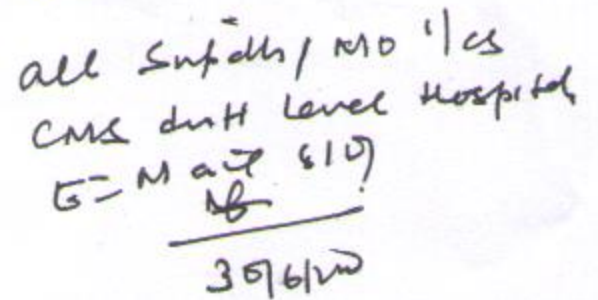 all Supdts / MO I/cs
CMS distt Level Hospital
E=Mail
30/6/20